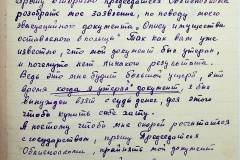 прошу вторично председателя Облисполкома
разобрать мое заявление, по поводу моего
эвакуационного документа "Опись имущества
оставленного в колхозе" Так как вам уже
известно, что мой документ был утерян,
и почему то нет никакого результата.
Ведь это мне будет большой ущерб, в то
время когда я утерял документ, я был
вынужден взять ссуду денег, для того
чтобы купить себе хату.
А поэтому чтобы мне скорей рассчитаться
с государством, прошу Председателя
Облисполкома, принять мой документ